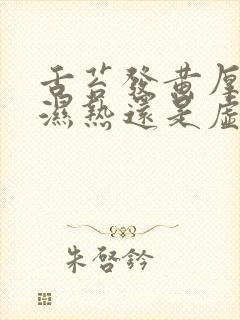 舌苔發黃厚
濕熱還是虛
朱啓鈐